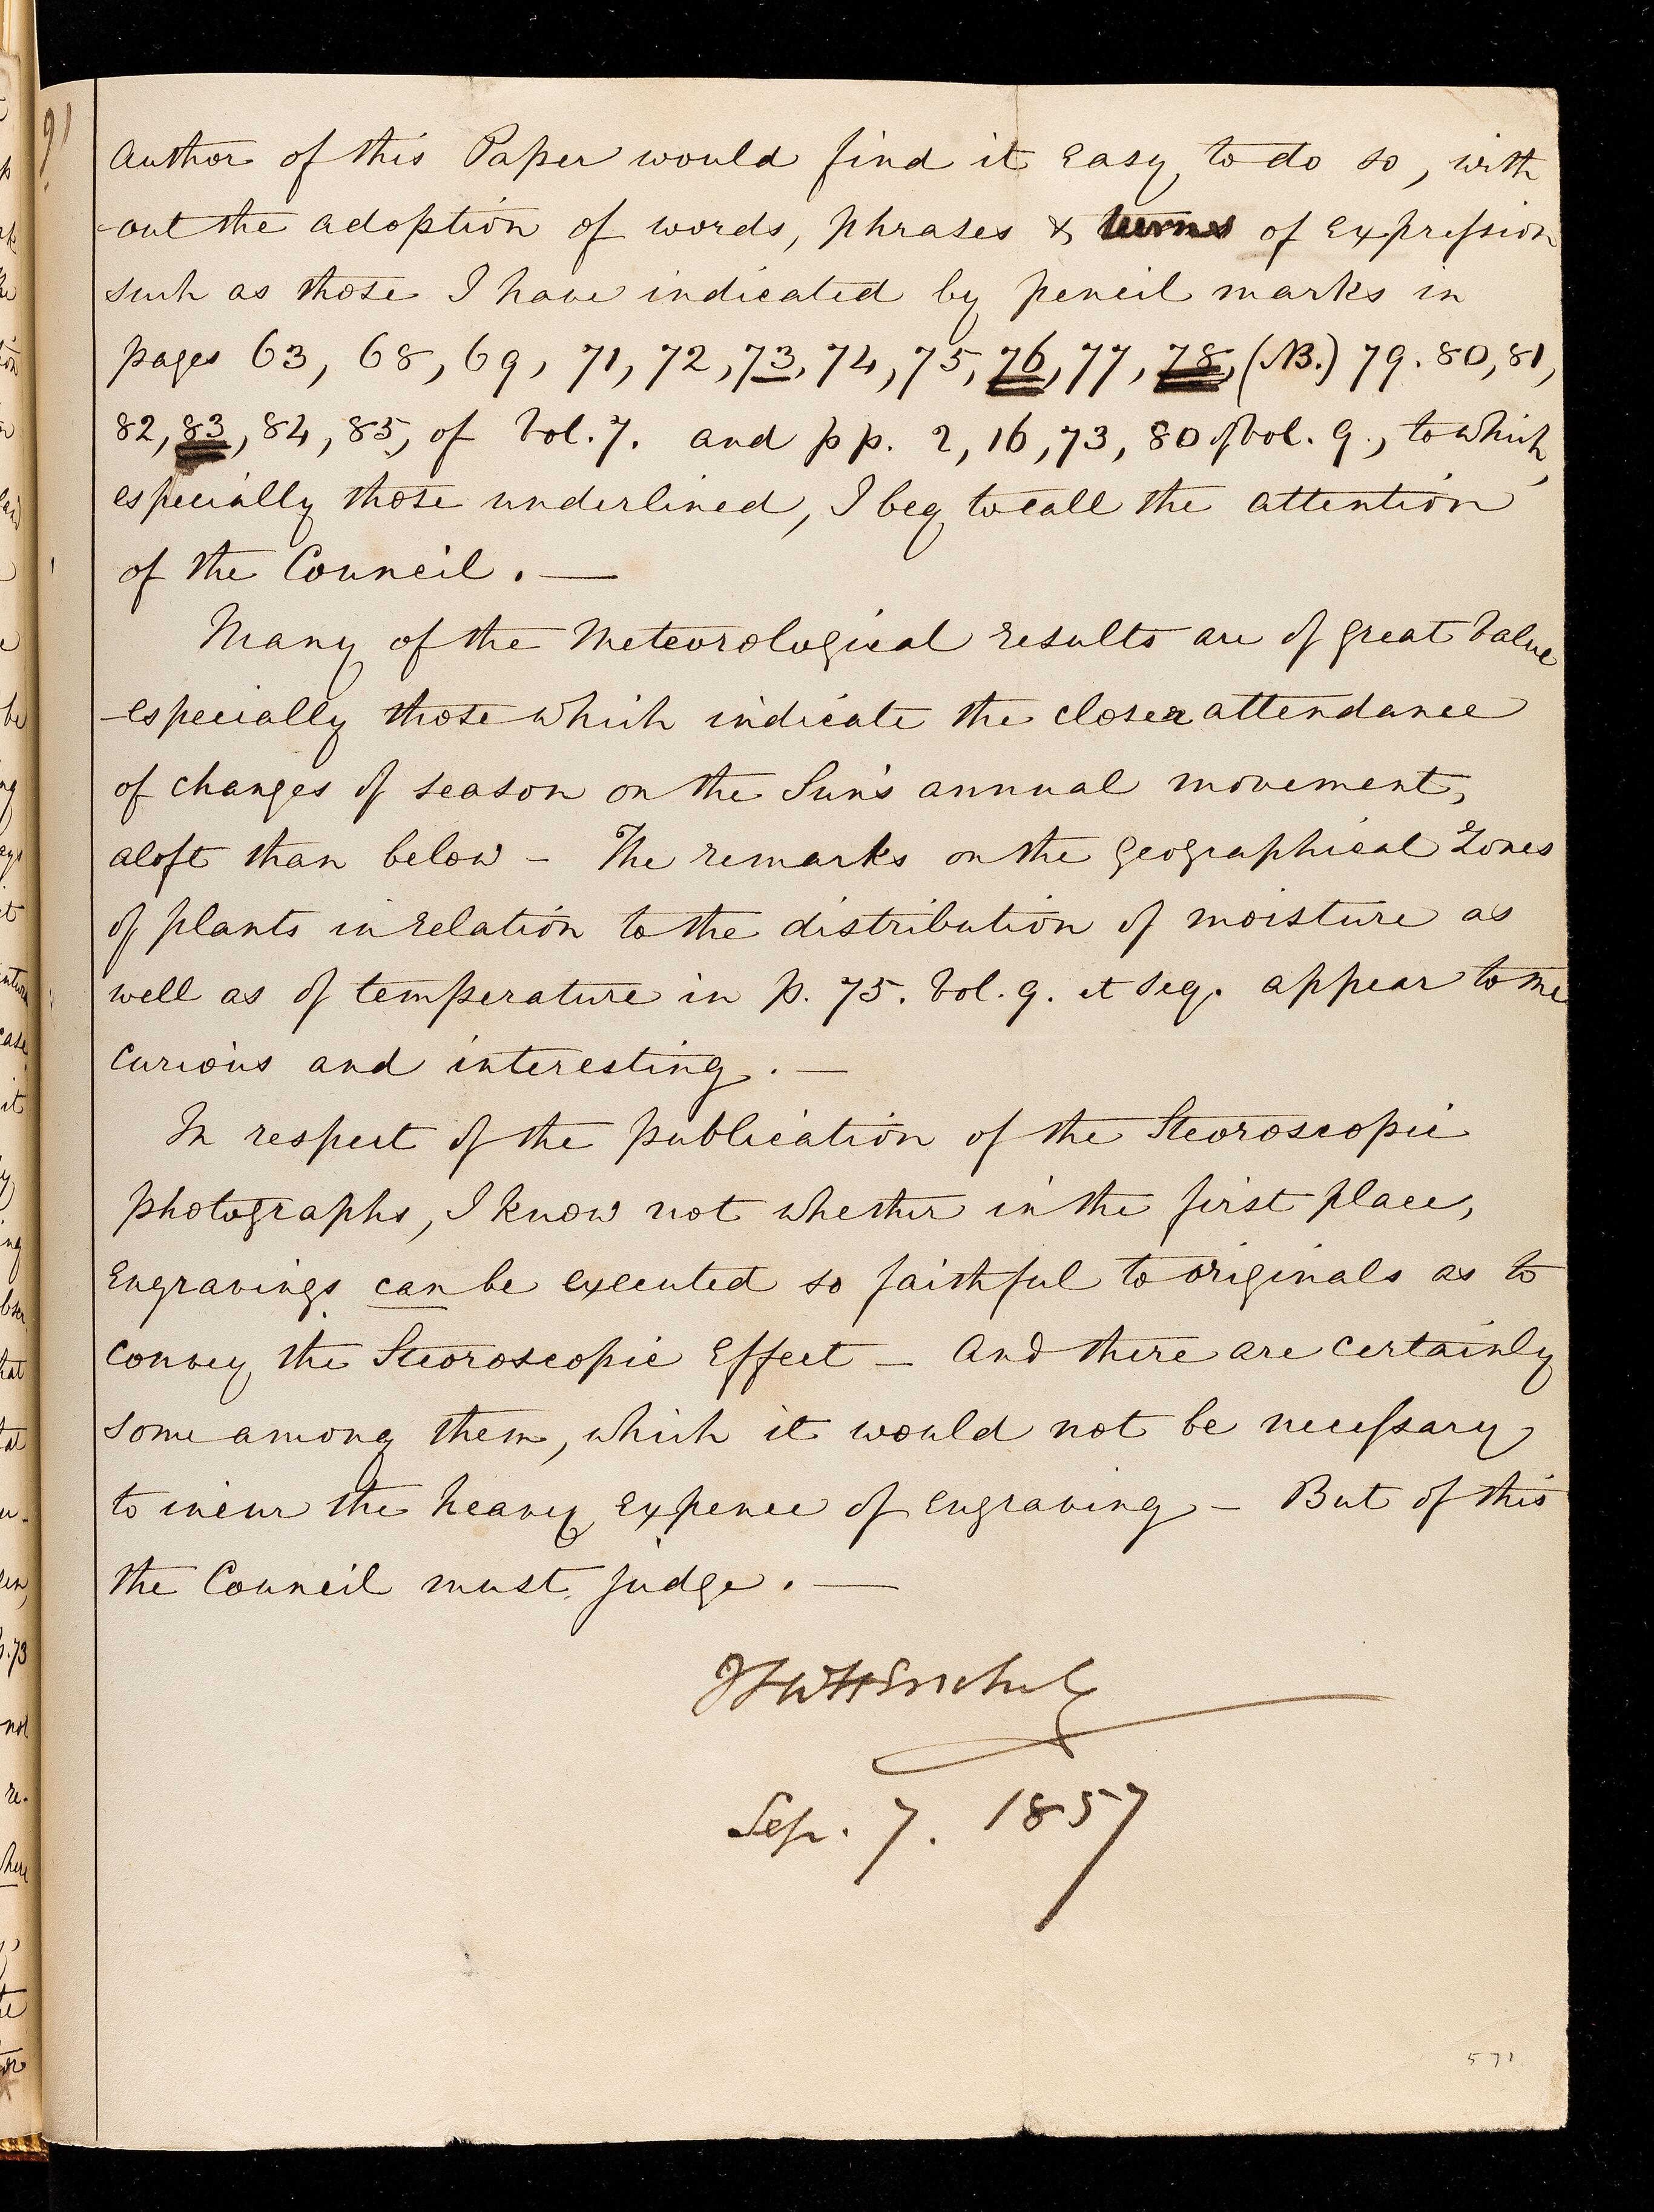 91
Author of this Paper would find it easy to do so, with
-out the adoption of words, phrases & turns of expression
such as those I have indicated by pencil marks in
pages 63, 68, 69, 71, 72, 73, 74, 75, 76, 77, 78, (NB.) 79. 80, 81,
82, 83, 84, 85, of Vol. 7. and pp. 2, 16, 73, 80 of Vol. 9., to which,
especially those underlined, I beg to call the attention
of the Council. —
Many of the Meteorological results are of great value
-especially those which indicate the closer attendance
of changes of season on the Sun's annual movement,
aloft than below - The remarks on the geographical Zones
of plants in relation to the distribution of moisture as
well as of temperature in p. 75. Vol. 9. et seq. appear to me
curious and interesting. —
In respect of the publication of the Steoroscopic
photographs, I know not whether in the first place,
Engravings can be executed so faithful to originals as to
convey the Steoroscopic Effect — And there are certainly
some among them, which it would not be necessary
to incur the heavy expence of engraving — But of this
the Council must judge. —
JFWHerschel
Sep. 7. 1857
571